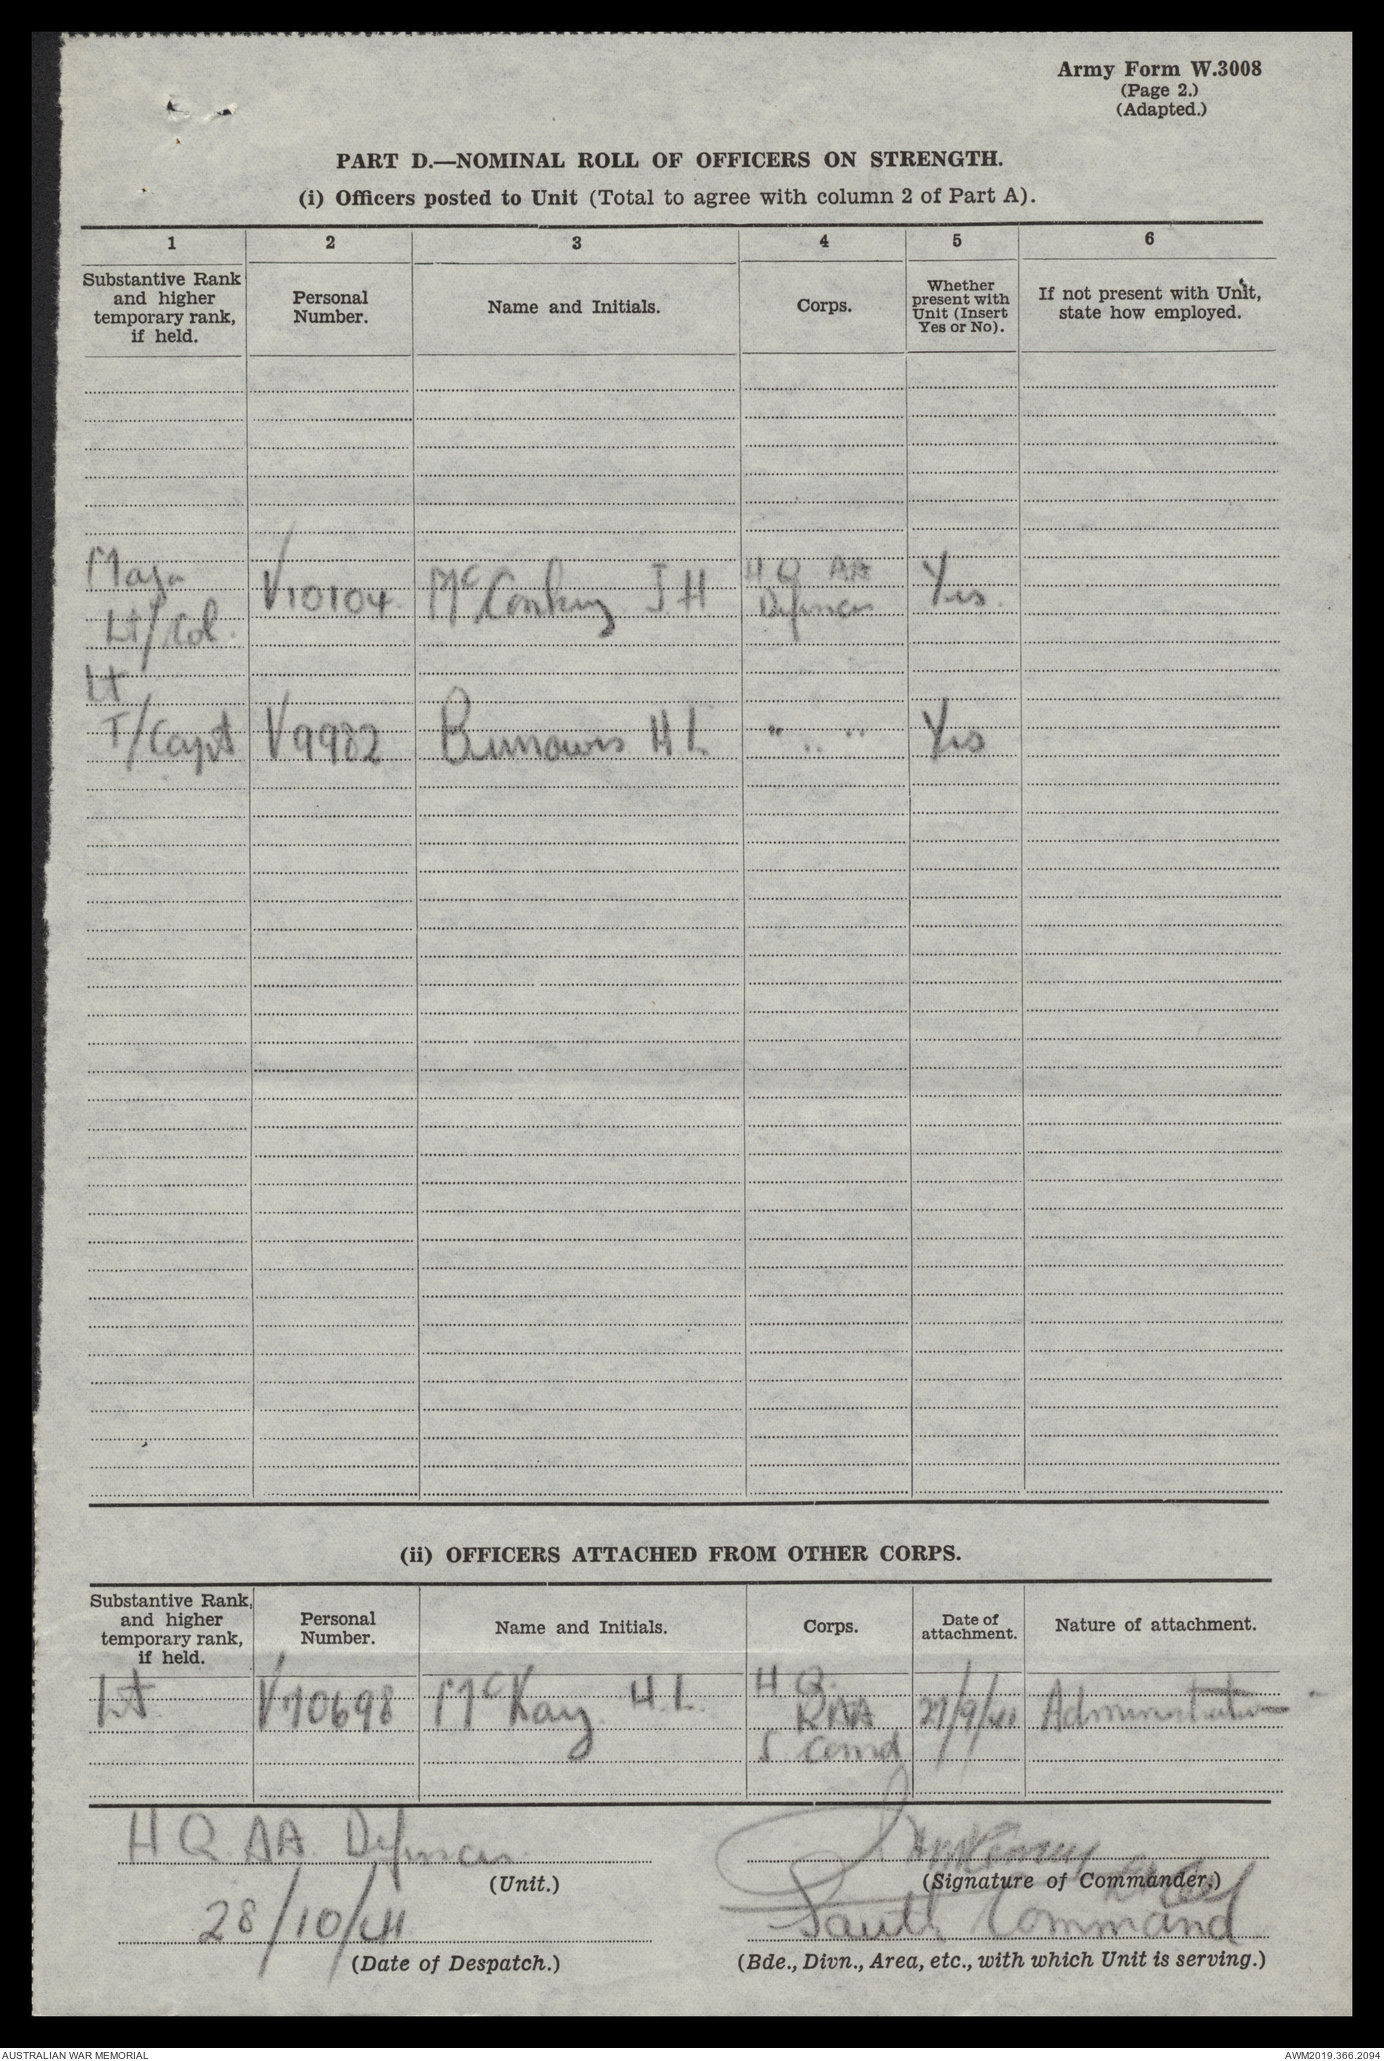 Army Form W.3008
(Page 2.)
(Adapted.)
PART D.—NOMINAL ROLL OF OFFICERS ON STRENGTH.
(i) Officers posted to Unit (Total to agree with column 2 of Part A).
1 2 3 4 5 6
Substantive Rank and higher temporary rank, if held.
Personal Number.
Name and Initials.
Corps.
Whether present with Unit (Insert Yes or No).
If not present with Unit, state how employed.
Maj
Lt/Col. V10104 McConkey J H H Q AA Defences Yes.
Lt
T/Capt V9982 Burrowes H L " .. " Yes
(ii) OFFICERS ATTACHED FROM OTHER CORPS.
Substantive Rank, and higher temporary rank, if held.
Personal Number.
Name and Initials.
Corps.
Date of attachment.
Nature of attachment.
Lt V70698 McKay. H.L. H Q. RAA S Comd 27/9/41 Administration
H Q AA Defences
(Unit.)
(Signature of Commander.)
Lt Col
28/10/41
South Command
(Date of Despatch.)
(Bde., Divn., Area, etc., with which Unit is serving.)
AUSTRALIAN WAR MEMORIAL
AWM2019.366.2094